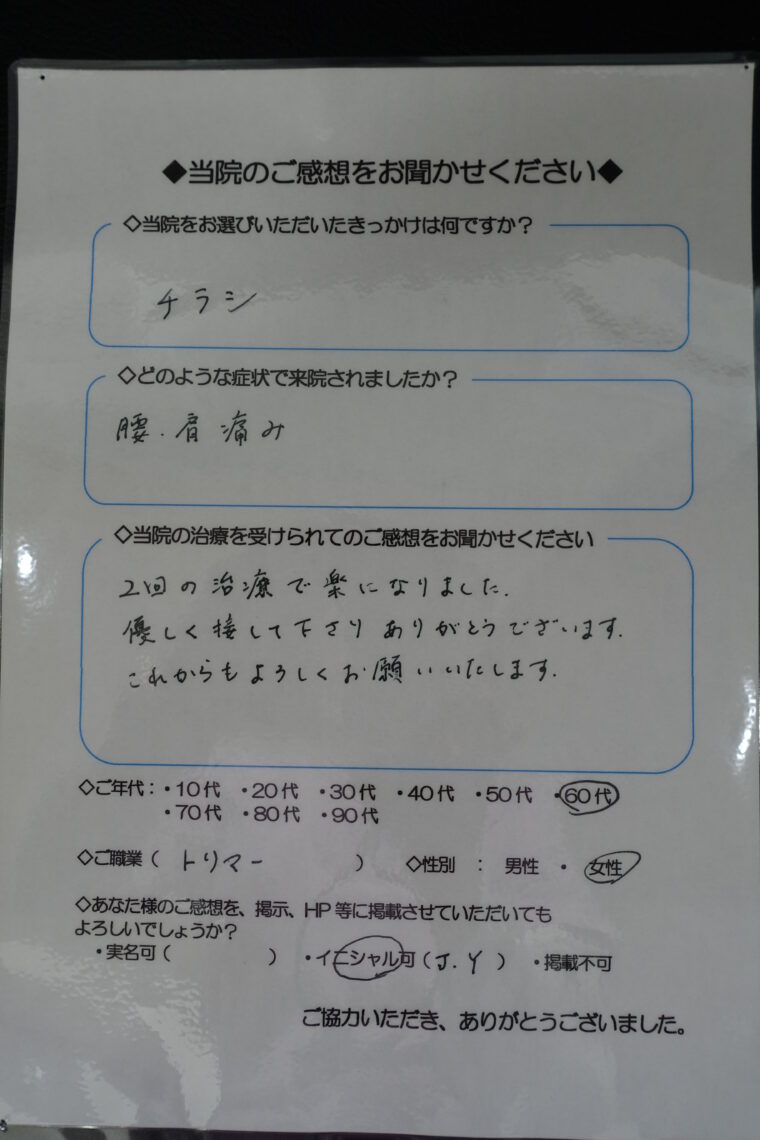 ◆当院のご感想をお聞かせください◆
◇当院をお選びいただいたきっかけは何ですか？
チラシ
◇どのような症状で来院されましたか？
腰．肩 痛み
◇当院の治療を受けられてのご感想をお聞かせください
2回の治療で楽になりました．
優しく接して下さりありがとうございます．
これからもよろしくお願いいたします．
◇ご年代：・10代 ・20代 ・30代 ・40代 ・50代 ・60代
・70代 ・80代 ・90代
◇ご職業（ トリマー ） ◇性別 ： 男性 ・ 女性
◇あなた様のご感想を、掲示、HP等に掲載させていただいても
よろしいでしょうか？
・実名可（ ） ・イニシャル可（J.Y） ・掲載不可
ご協力いただき、ありがとうございました。